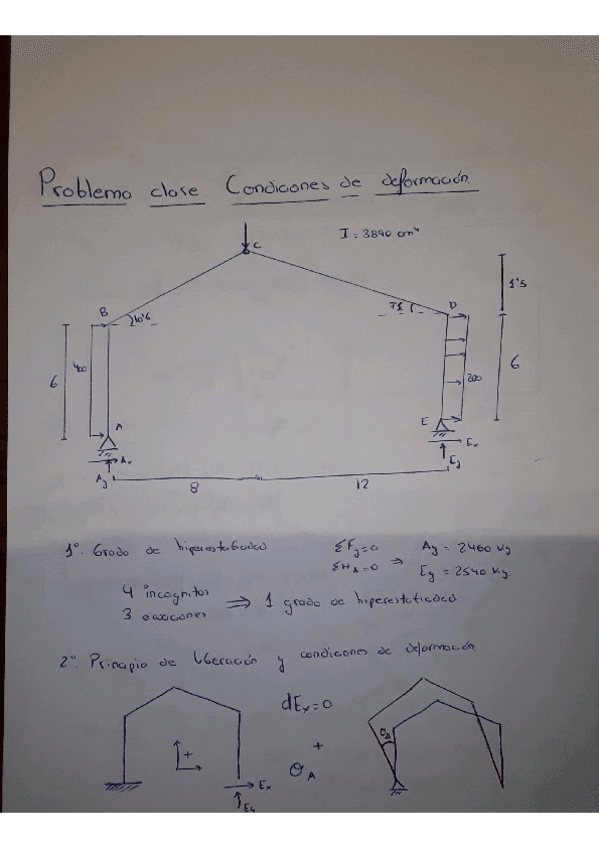 Problema clase Condiciones de deformación
I = 3890 cm⁴
C
B
20'6
7'1
D
1'5
6
400
200
6
A
E
Ax
Ex
Ay
Ey
8
12
1º. Grado de hiperestaticidad
ΣFy=0
ΣMA=0
⇒
Ay = 2460 kg
Ey = 2540 kg.
4 incognitas
3 ecuaciones
⇒ 1 grado de hiperestaticidad
2º. Principio de liberación y condiciones de deformación
dEx=0
+
θA
+
Ex
Ey
θA